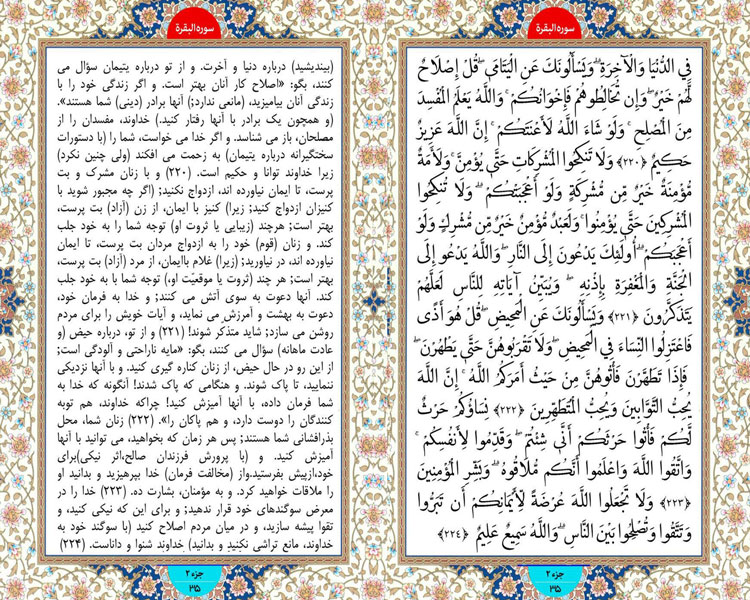 سوره البقرة
فِي الدُّنْيَا وَالْآخِرَةِ ۗ وَيَسْأَلُونَكَ عَنِ الْيَتَامَىٰ ۖ قُلْ إِصْلَاحٌ
لَّهُمْ خَيْرٌ ۖ وَإِن تُخَالِطُوهُمْ فَإِخْوَانُكُمْ ۚ وَاللَّهُ يَعْلَمُ الْمُفْسِدَ
مِنَ الْمُصْلِحِ ۚ وَلَوْ شَاءَ اللَّهُ لَأَعْنَتَكُمْ ۚ إِنَّ اللَّهَ عَزِيزٌ
حَكِيمٌ ﴿۲۲۰﴾ وَلَا تَنكِحُوا الْمُشْرِكَاتِ حَتَّىٰ يُؤْمِنَّ ۚ وَلَأَمَةٌ
مُّؤْمِنَةٌ خَيْرٌ مِّن مُّشْرِكَةٍ وَلَوْ أَعْجَبَتْكُمْ ۗ وَلَا تُنكِحُوا
الْمُشْرِكِينَ حَتَّىٰ يُؤْمِنُوا ۚ وَلَعَبْدٌ مُّؤْمِنٌ خَيْرٌ مِّن مُّشْرِكٍ وَلَوْ
أَعْجَبَكُمْ ۗ أُولَٰئِكَ يَدْعُونَ إِلَى النَّارِ ۖ وَاللَّهُ يَدْعُو إِلَى
الْجَنَّةِ وَالْمَغْفِرَةِ بِإِذْنِهِ ۖ وَيُبَيِّنُ آيَاتِهِ لِلنَّاسِ لَعَلَّهُمْ
يَتَذَكَّرُونَ ﴿۲۲۱﴾ وَيَسْأَلُونَكَ عَنِ الْمَحِيضِ ۖ قُلْ هُوَ أَذًى
فَاعْتَزِلُوا النِّسَاءَ فِي الْمَحِيضِ ۖ وَلَا تَقْرَبُوهُنَّ حَتَّىٰ يَطْهُرْنَ ۖ
فَإِذَا تَطَهَّرْنَ فَأْتُوهُنَّ مِنْ حَيْثُ أَمَرَكُمُ اللَّهُ ۚ إِنَّ اللَّهَ
يُحِبُّ التَّوَّابِينَ وَيُحِبُّ الْمُتَطَهِّرِينَ ﴿۲۲۲﴾ نِسَاؤُكُمْ حَرْثٌ
لَّكُمْ فَأْتُوا حَرْثَكُمْ أَنَّىٰ شِئْتُمْ ۖ وَقَدِّمُوا لِأَنفُسِكُمْ ۚ
وَاتَّقُوا اللَّهَ وَاعْلَمُوا أَنَّكُم مُّلَاقُوهُ ۗ وَبَشِّرِ الْمُؤْمِنِينَ
﴿۲۲۳﴾ وَلَا تَجْعَلُوا اللَّهَ عُرْضَةً لِّأَيْمَانِكُمْ أَن تَبَرُّوا
وَتَتَّقُوا وَتُصْلِحُوا بَيْنَ النَّاسِ ۗ وَاللَّهُ سَمِيعٌ عَلِيمٌ ﴿۲۲۴﴾
جزء ۲
۳۵
سوره البقرة
(بیندیشید) درباره دنیا و آخرت. و از تو درباره یتیمان سؤال می
کنند، بگو: «اصلاح کار آنان بهتر است. و اگر زندگی خود را با
زندگی آنان بیامیزید، (مانعی ندارد؛) آنها برادر (دینی) شما هستند».
(و همچون یک برادر با آنها رفتار کنید.) خداوند، مفسدان را از
مصلحان، باز می شناسد. و اگر خدا می خواست، شما را (با دستورات
سختگیرانه درباره یتیمان) به زحمت می افکند (ولی چنین نکرد)
زیرا خداوند توانا و حکیم است. (۲۲۰) و با زنان مشرک و بت
پرست، تا ایمان نیاورده اند، ازدواج نکنید; (اگر چه مجبور شوید با
کنیزان ازدواج کنید; زیرا) کنیز با ایمان، از زن (آزاد) بت پرست،
بهتر است; هرچند (زیبایی یا ثروت او) توجه شما را به خود جلب
کند. و زنان (قوم) خود را به ازدواج مردان بت پرست، تا ایمان
نیاورده اند، در نیاورید; (زیرا) غلام باایمان، از مرد (آزاد) بت پرست،
بهتر است; هر چند (ثروت یا موقعیّت او،) توجه شما را به خود جلب
کند. آنها دعوت به سوی آتش می کنند; و خدا به فرمان خود،
دعوت به بهشت و آمرزش می نماید، و آیات خویش را برای مردم
روشن می سازد; شاید متذکر شوند! (۲۲۱) و از تو، درباره حیض (و
عادت ماهانه) سؤال می کنند، بگو: «مایه ناراحتی و آلودگی است;
از این رو در حال حیض، از زنان کناره گیری کنید. و با آنها نزدیکی
ننمایید، تا پاک شوند. و هنگامی که پاک شدند! آنگونه که خدا به
شما فرمان داده، با آنها آمیزش کنید! چراکه خداوند، هم توبه
کنندگان را دوست دارد، و هم پاکان را». (۲۲۲) زنان شما، محل
بذرافشانی شما هستند; پس هر زمان که بخواهید، می توانید با آنها
آمیزش کنید. و (با پرورش فرزندان صالح،اثر نیکی)برای
خود،ازپیش بفرستید.واز (مخالفت فرمان) خدا بپرهیزید و بدانید او
را ملاقات خواهید کرد. و به مؤمنان، بشارت ده. (۲۲۳) خدا را در
معرض سوگندهای خود قرار ندهید; و برای این که نیکی کنید، و
تقوا پیشه سازید، و در میان مردم اصلاح کنید (با سوگند خود به
خداوند، مانع تراشی نکنید و بدانید) خداوند شنوا و داناست. (۲۲۴)
جزء ۲
۳۵